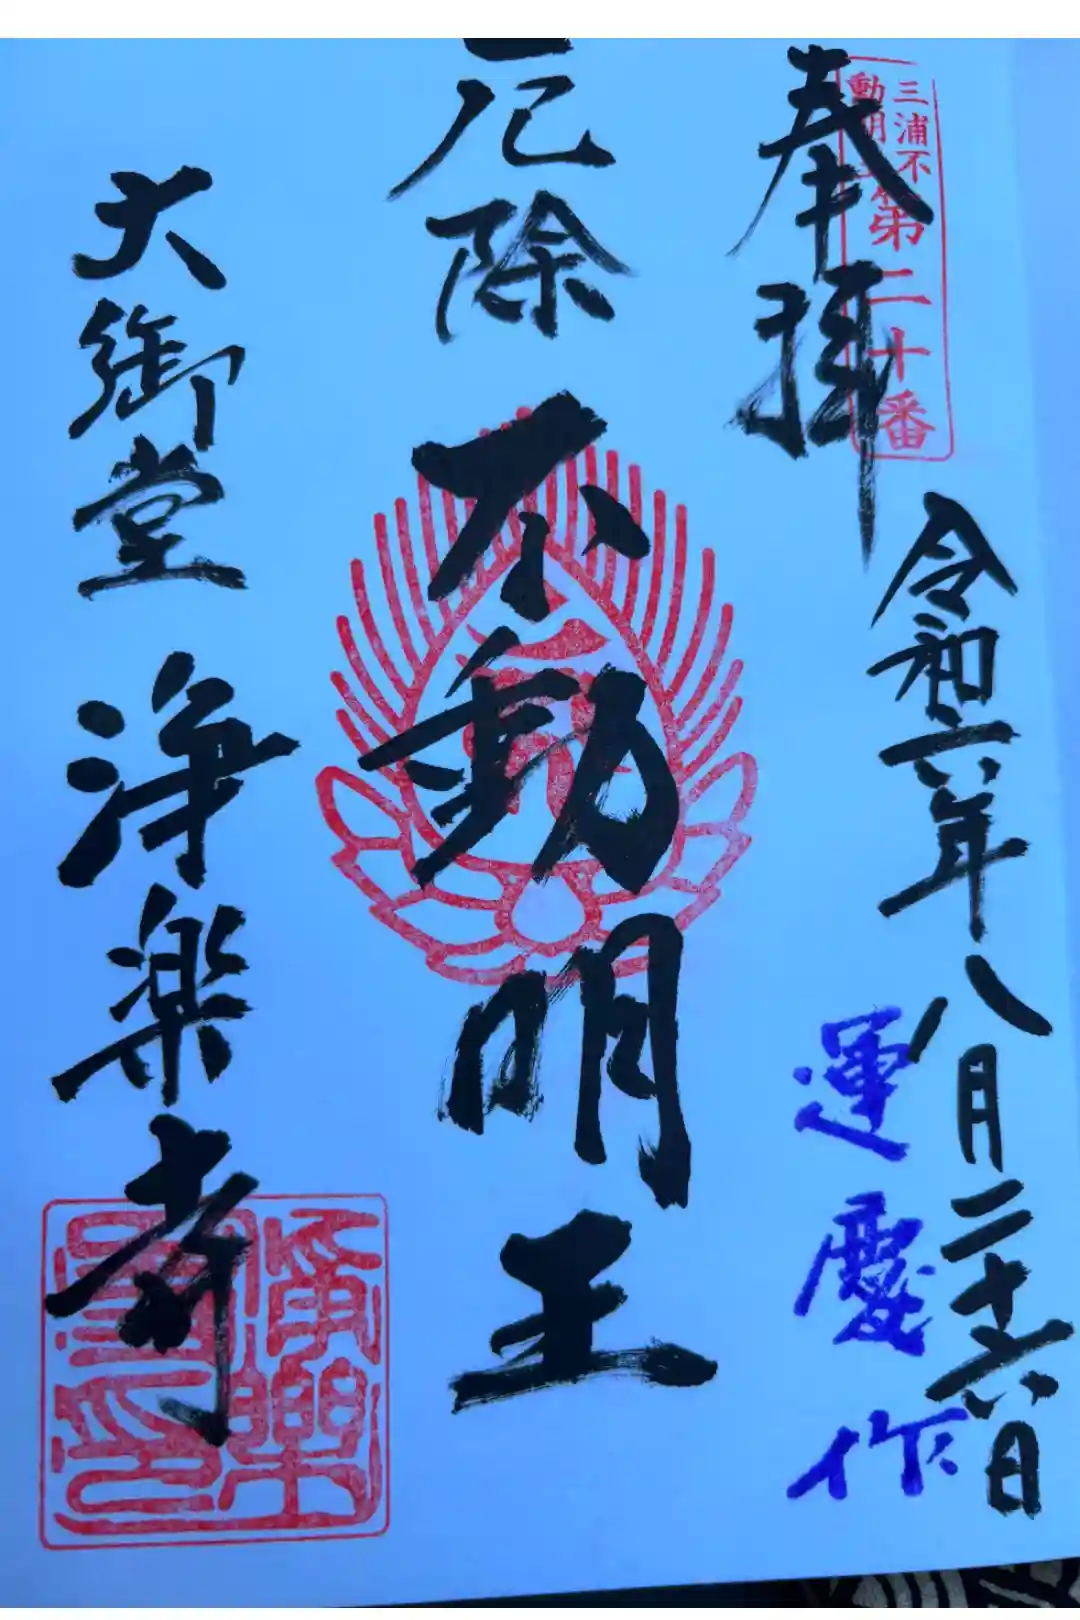 奉拝
三浦不
動明王
第二十番
令和六年八月二十六日
運慶作
厄除
不動明王
大御堂
浄楽寺